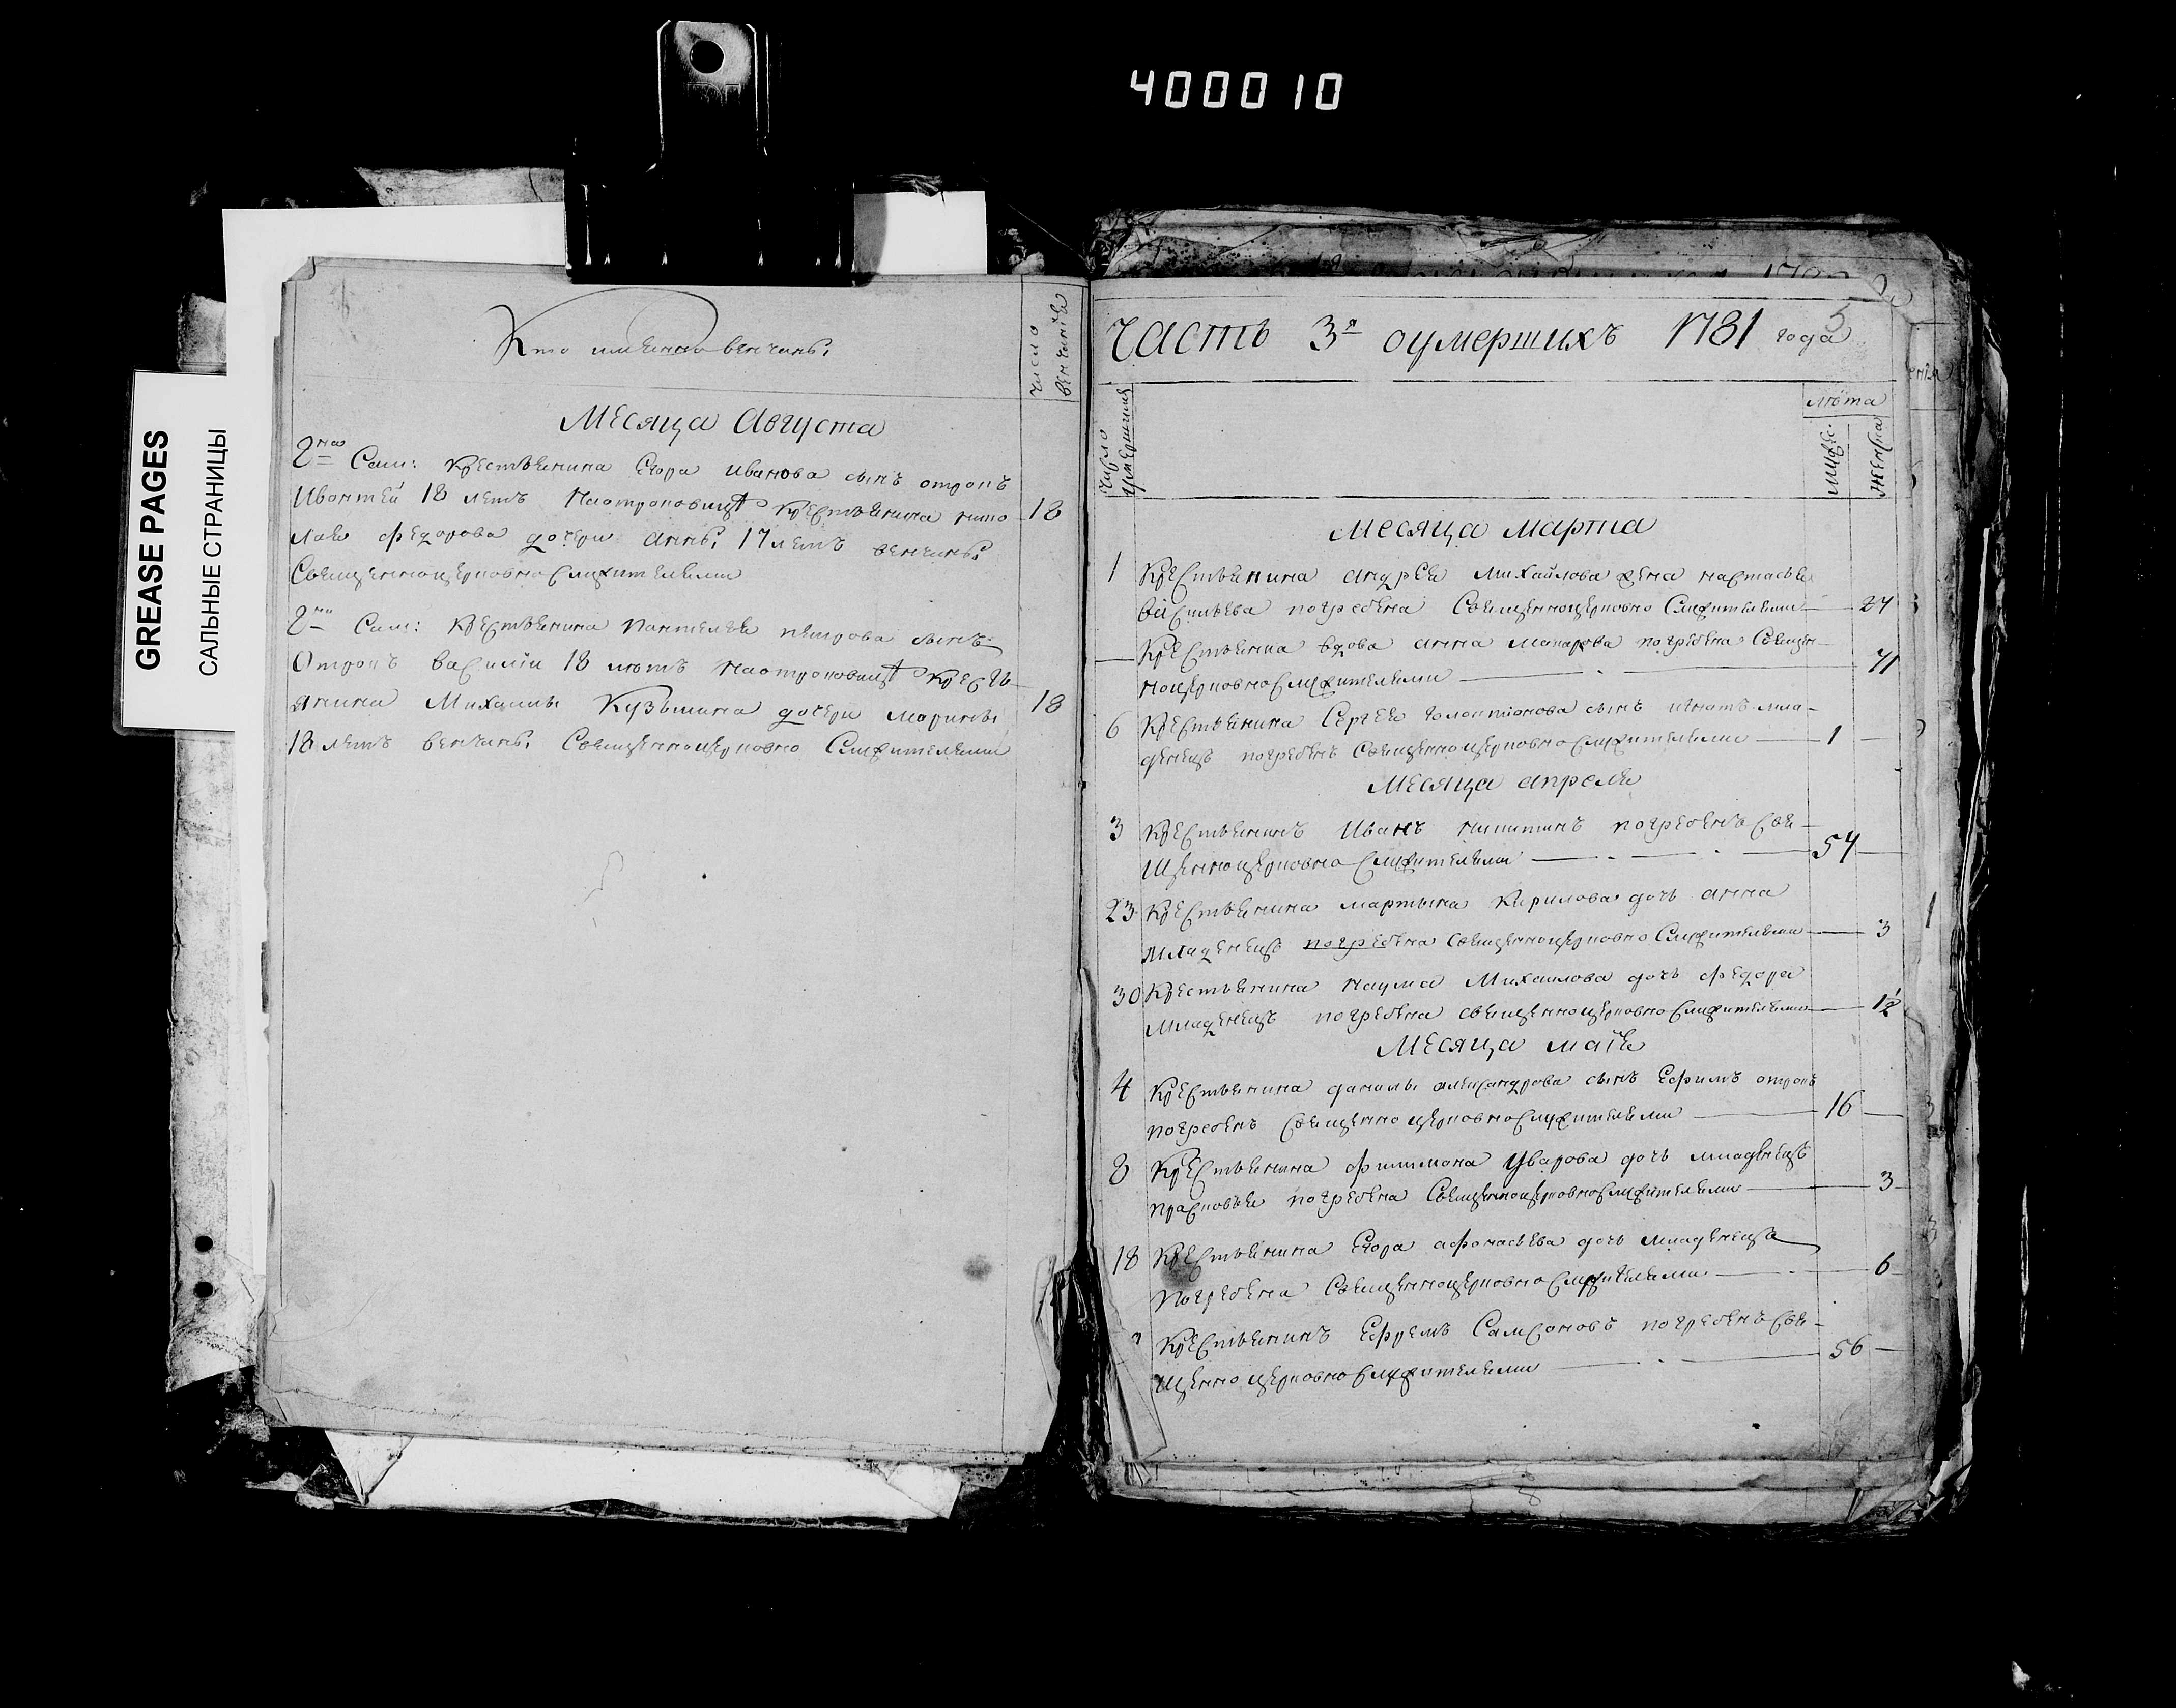 400010
GREASE PAGES
САЛЬНЫЕ СТРАНИЦЫ
Кто имянно венчаны
число венчанія
Месяца Августа
2 Сел: крестьянина Егора Иванова сынъ отрокъ
18 летъ наотроковице крестьянина нико
лая федорова дочери анны 17 летъ венчаны
Священноцерковно служителями
18
2 Сел: крестьянина пантелея петрова сынъ
Отрокъ василии 18 летъ наотроковице кресть
янина Михаилы Кузьмина дочери марины
18 летъ венчаны Священноцерковно Служителями
18
5
часть 3я оумершихъ 1781 года
число умершихъ
лѣта
мужес:
женска
месяца марта
1 крестьянина андрея михайлова жена настасья
васильева погребена Священноцерковно Служителями 27
крестьянка вдова анна макарова погребена Священ
ноцерковнослужителями 71
6 крестьянина Сергея сынъ игнатъ мла
денецъ погребенъ Священноцерковнослужителями 1
Месяца апреля
3 крестьянинъ Иванъ никитинъ погребенъ Свя
щенноцерковнослужителями 54
23 крестьянина мартына Кирилова дочь анна
младенецъ погребена Священноцерковно Служителями 3
30 крестьянина наума Михаилова дочь федора
младенецъ погребена священноцерковнослужителями 1½
Месяца маія
4 крестьянина данилы александрова сынъ Ефимъ отрокъ
погребенъ Священно церковнослужителями 16
8 крестьянина филимона Уварова дочь младенецъ
прасковья погребена Священноцерковнослужителями 3
18 крестьянина Егора афонасьева дочь младенецъ
погребена Священноцерковнослужителями 6
крестьянинъ Ефремъ Самсоновъ погребенъ Свя
щенно церковнослужителями 56